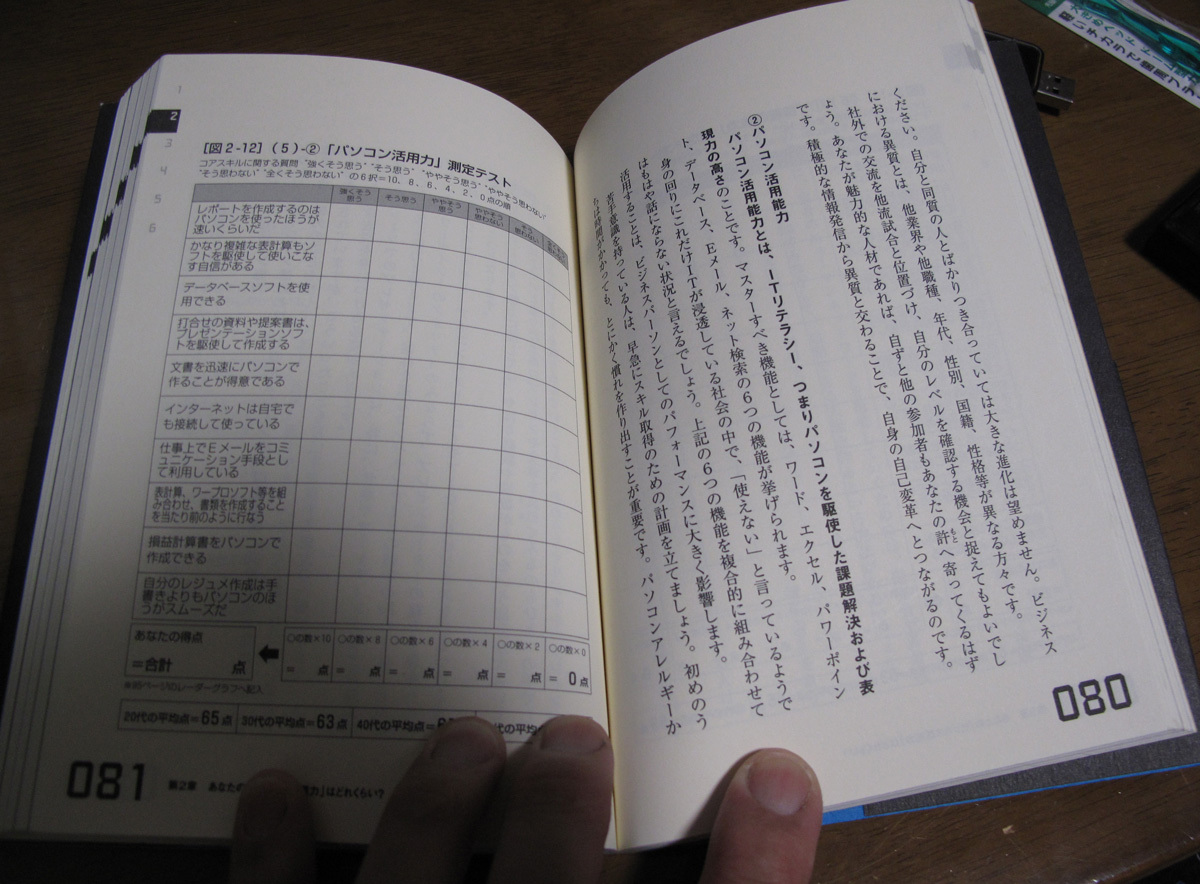 ください。自分と同質の人とばかりつき合っていては大きな進化は望めません。ビジネス
における異質とは、他業界や他職種、年代、性別、国籍、性格等が異なる方々です。
社外での交流を他流試合と位置づけ、自分のレベルを確認する機会と捉えてもよいでし
ょう。あなたが魅力的な人材であれば、自ずと他の参加者もあなたの許へ寄ってくるはず
です。積極的な情報発信から異質と交わることで、自身の自己変革へとつながるのです。
②パソコン活用能力
パソコン活用能力とは、ITリテラシー、つまりパソコンを駆使した課題解決および表
現力の高さのことです。マスターすべき機能としては、ワード、エクセル、パワーポイン
ト、データベース、Eメール、ネット検索の6つの機能が挙げられます。
身の回りにこれだけITが浸透している社会の中で、「使えない」と言っているようで
はもはや話にならない状況と言えるでしょう。上記の6つの機能を複合的に組み合わせて
活用することは、ビジネスパーソンとしてのパフォーマンスに大きく影響します。
苦手意識を持っている人は、早急にスキル取得のための計画を立てましょう。初めのう
ちは時間がかかっても、とにかく慣れを作り出すことが重要です。パソコンアレルギーか
080
1
2
3
4
5
6
[図2-12](5)-②「パソコン活用力」測定テスト
コアスキルに関する質問 “強くそう思う” “そう思う” “ややそう思う” “ややそう思わない”
“そう思わない” “全くそう思わない” の6択=10、8、6、4、2、0点の順
強くそう思う そう思う ややそう思う ややそう思わない そう思わない
レポートを作成するのは
パソコンを使ったほうが
速いくらいだ
かなり複雑な表計算もソ
フトを駆使して使いこな
す自信がある
データベースソフトを使
用できる
打合せの資料や提案書は、
プレゼンテーションソフ
トを駆使して作成する
文書を迅速にパソコンで
作ることが得意である
インターネットは自宅で
も接続して使っている
仕事上でEメールをコミ
ュニケーション手段とし
て利用している
表計算、ワープロソフト等を組
み合わせ、書類を作成すること
を当たり前のように行なう
損益計算書をパソコンで
作成できる
自分のレジュメ作成は手
書きよりもパソコンのほ
うがスムーズだ
あなたの得点
=合計 点
○の数×10 ○の数×8 ○の数×6 ○の数×4 ○の数×2 ○の数×0
= 点 = 点 = 点 = 点 = 点 = 0点
ページのレーダーグラフへ記入
20代の平均点=65点 30代の平均点=63点 40代の平均点=
081 第2章 あなたの 力」はどれくらい?